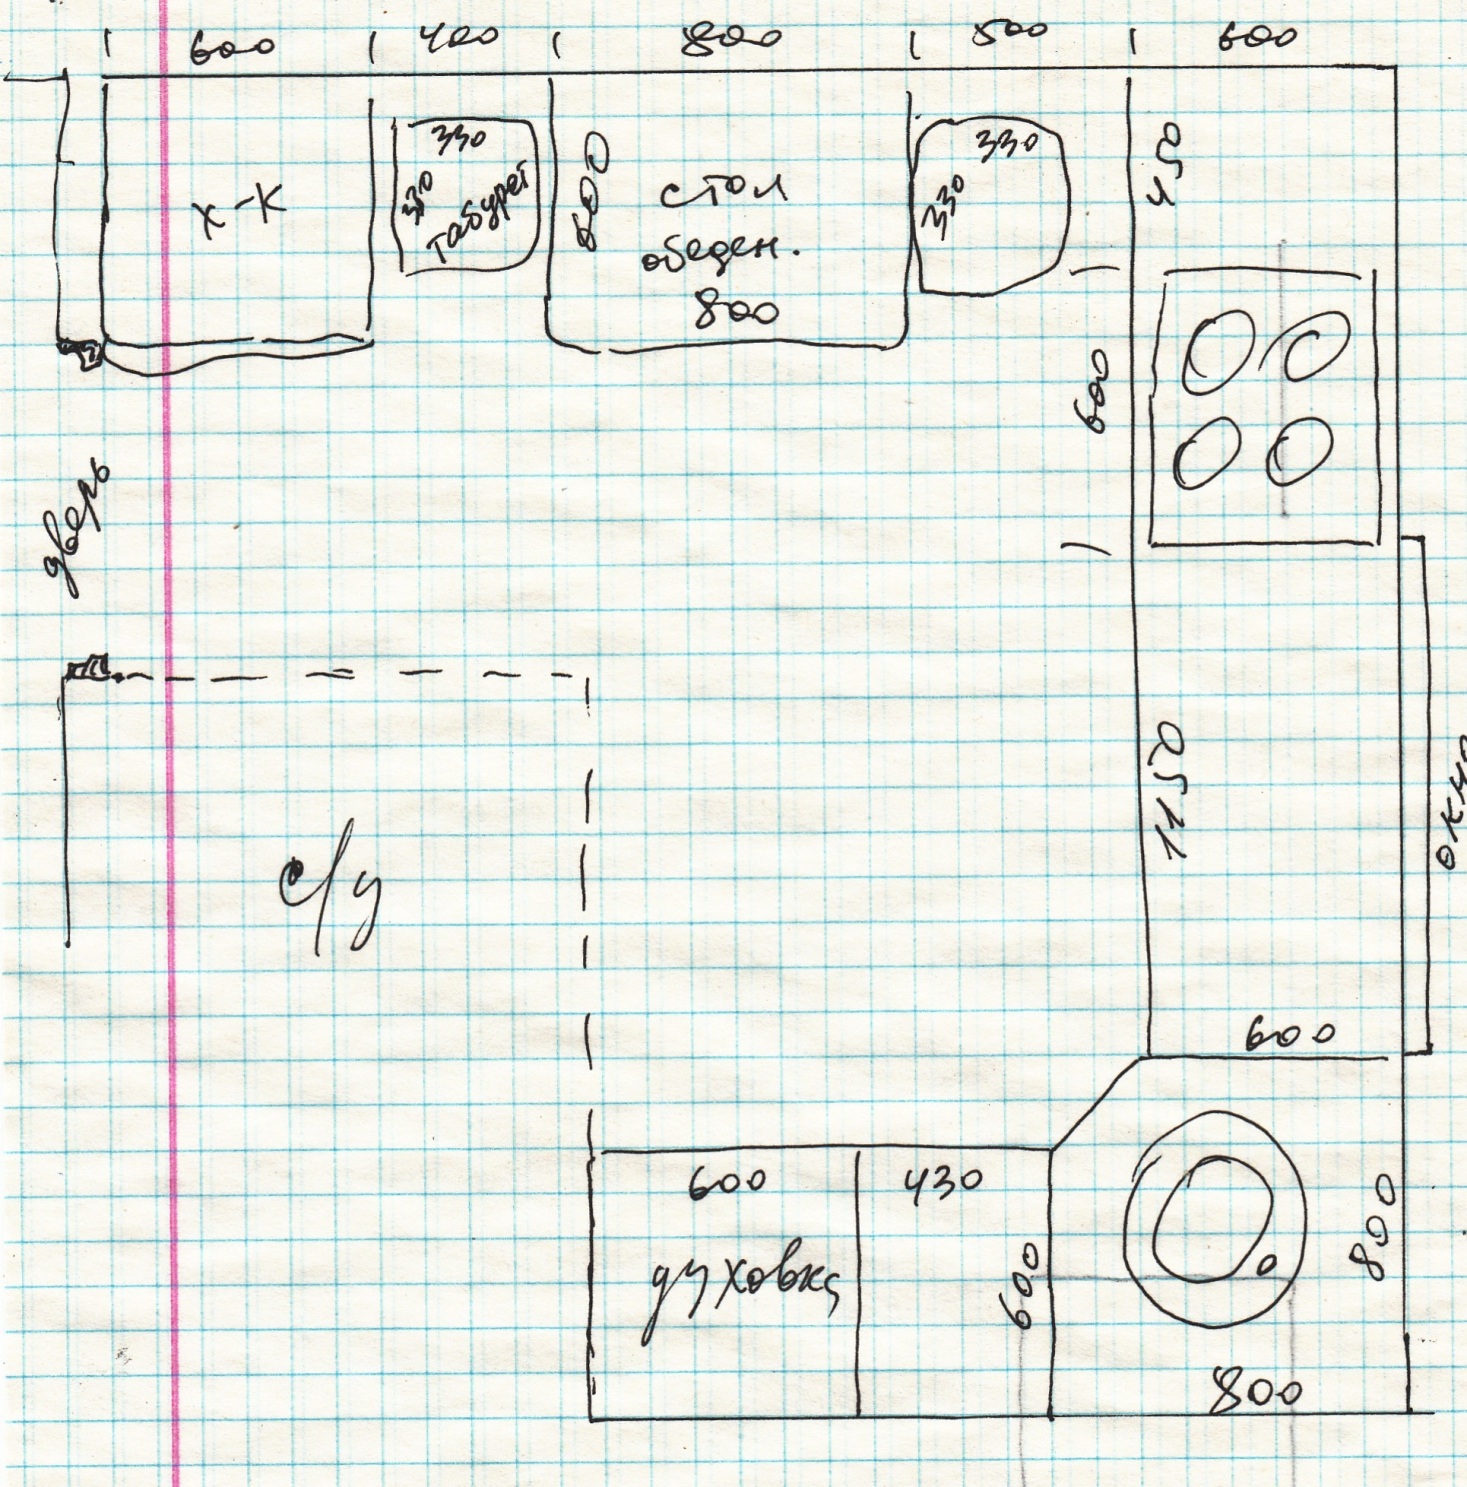 600 400 800 500 600
х-к
330
330
табурет
600
стол
обеден.
800
330
330
450
600
дверь
1150
окно
с/у
600
600
430
духовка
600
800
800